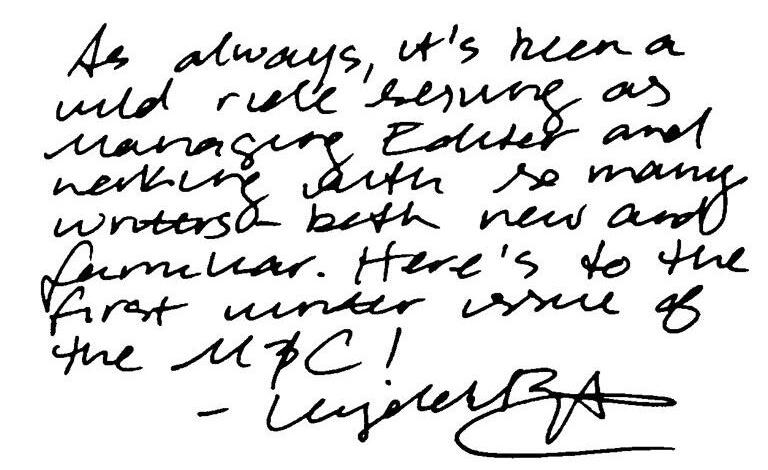 As always, it's been a
wild ride serving as
Managing Editor and
working with so many
writers both new and
familiar. Here's to the
first winter issue of
the MPC!
-